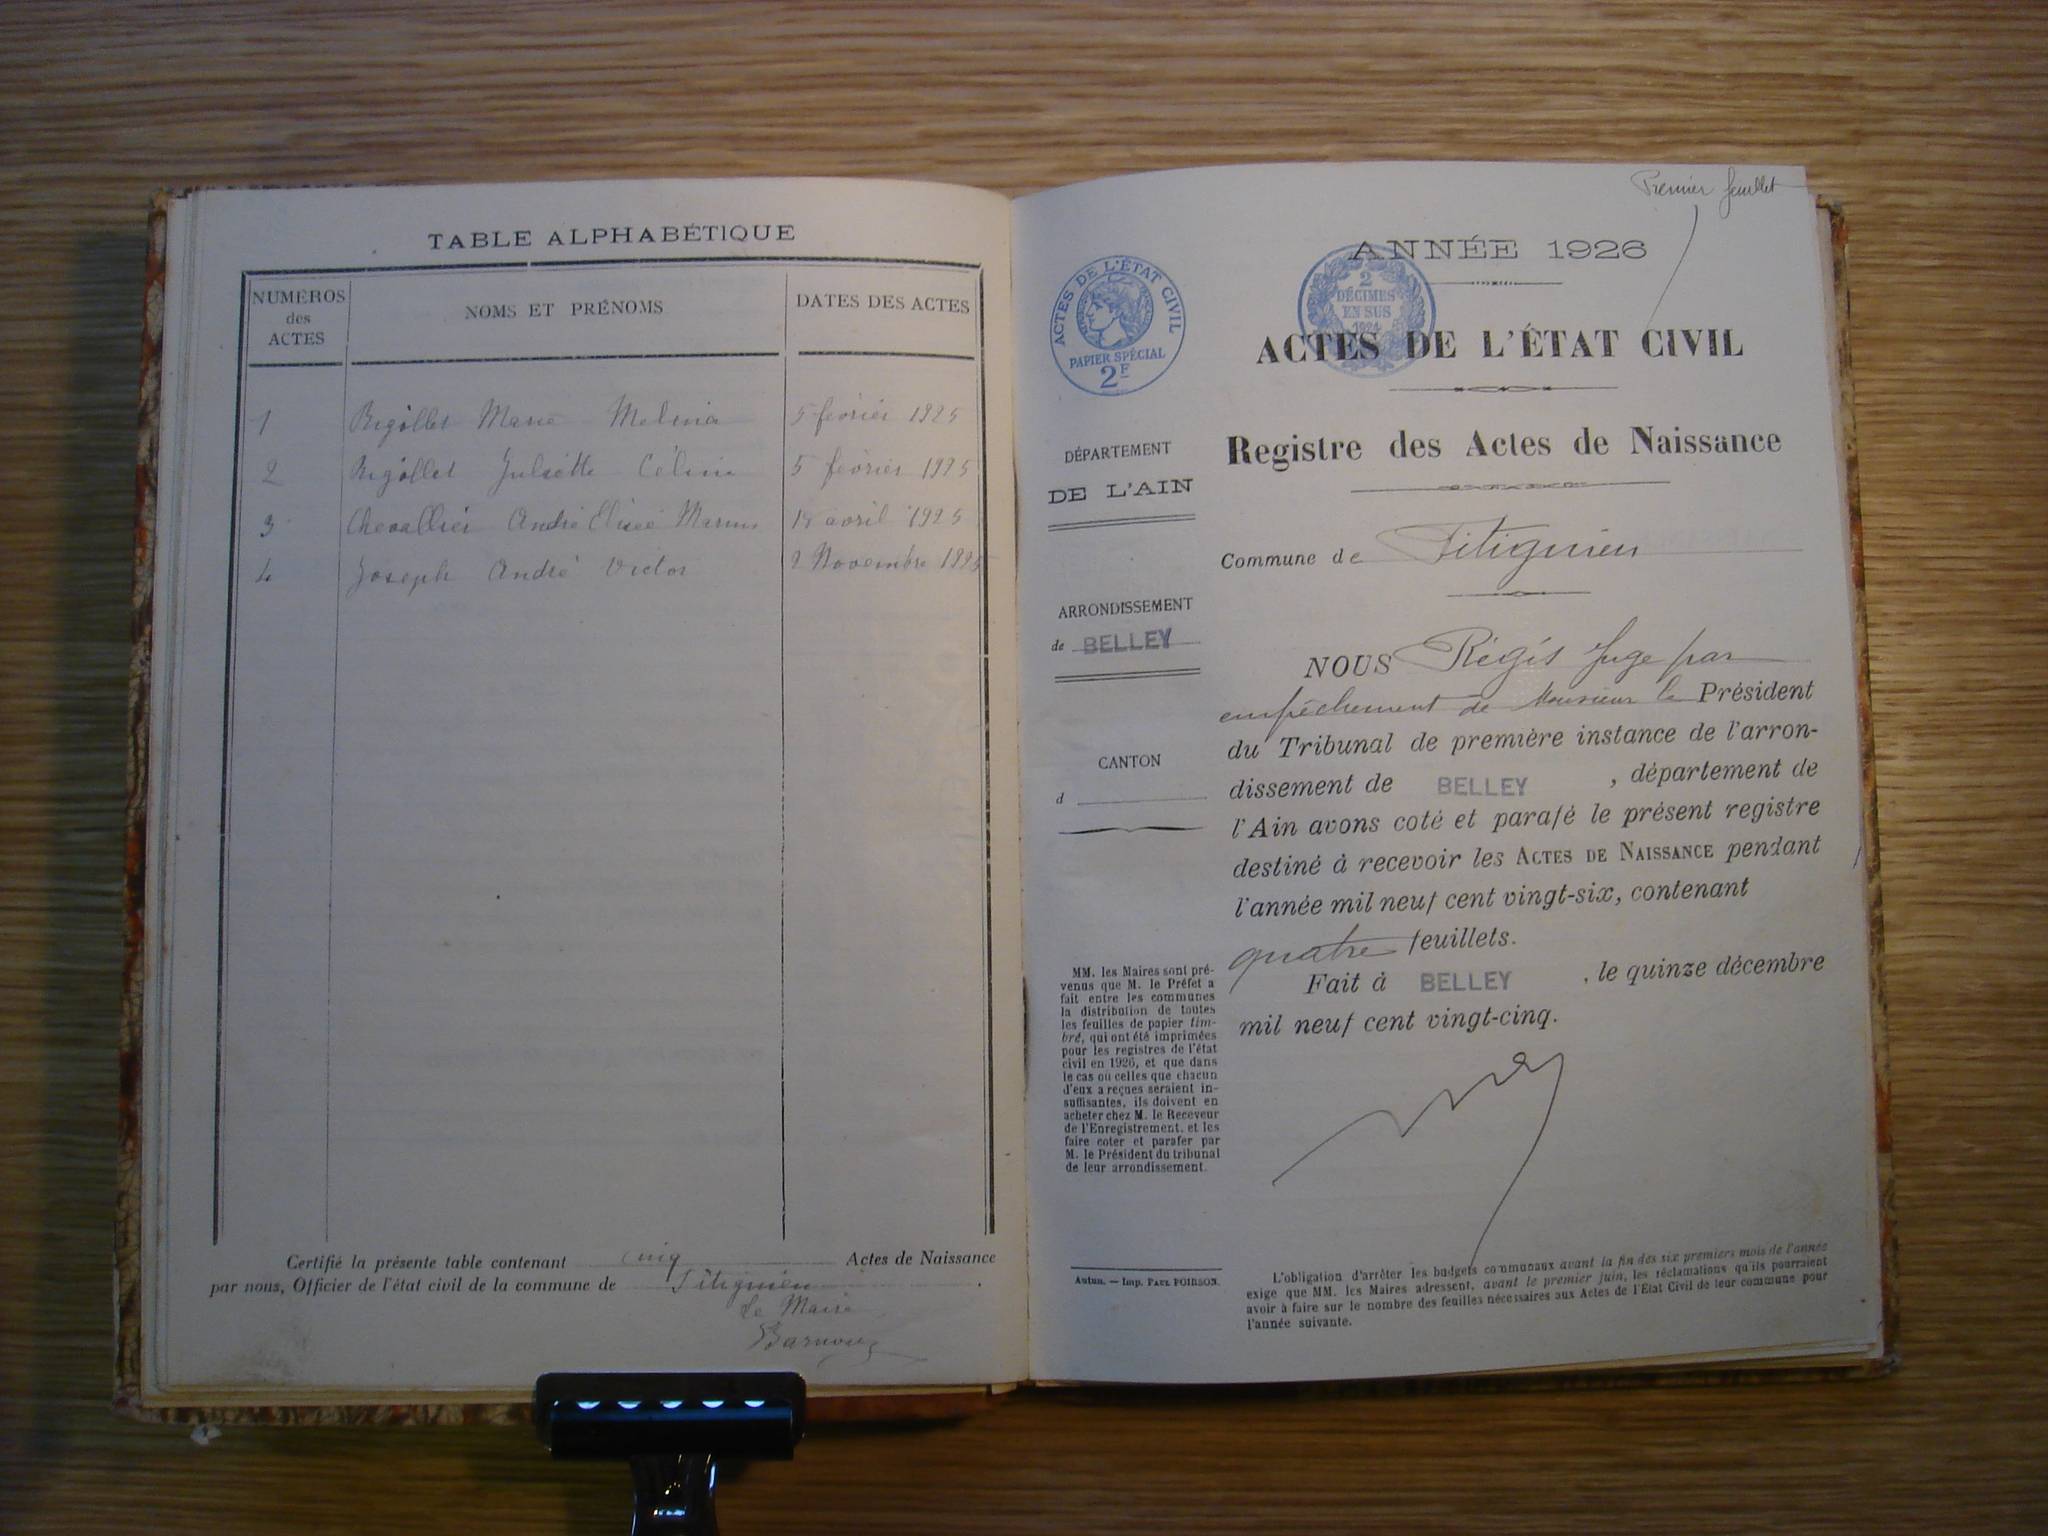 TABLE ALPHABÉTIQUE
NUMEROS
des
ACTES
NOMS ET PRÉNOMS
DATES DES ACTES
1 Rigollet Marie Melina 5 février 1925
2 Rigollet Juliette Céline 5 février 1925
3 Chevallier André Elisée Marius avril 1925
4 Joseph André Victor 2 Novembre 1925
Certifié la présente table contenant cinq Actes de Naissance
par nous, Officier de l'état civil de la commune de Titignieu .
Le Maire
Premier feuillet
ANNÉE 1926
ACTES DE L'ÉTAT CIVIL
PAPIER SPÉCIAL
2F
2
DÉCIMES
EN SUS
1924
ACTES DE L'ÉTAT CIVIL
Registre des Actes de Naissance
DÉPARTEMENT
DE L'AIN
Commune de Titignieu
ARRONDISSEMENT
de BELLEY
CANTON
d
NOUS Régis Juge par
empêchement de Monsieur le Président
du Tribunal de première instance de l'arron-
dissement de BELLEY , département de
l'Ain avons coté et parafé le présent registre
destiné à recevoir les ACTES DE NAISSANCE pendant
l'année mil neuf cent vingt-six, contenant
quatre feuillets.
Fait à BELLEY , le quinze décembre
mil neuf cent vingt-cinq.
MM. les Maires sont pré-
venus que M. le Préfet a
fait entre les communes
la distribution de toutes
les feuilles de papier tim-
bré, qui ont été imprimées
pour les registres de l'état
civil en 1926, et que dans
le cas où celles que chacun
d'eux a reçues seraient in-
suffisantes, ils doivent en
acheter chez M. le Receveur
de l'Enregistrement, et les
faire coter et parafer par
M. le Président du tribunal
de leur arrondissement.
Autun. — Imp. PAUL POIRSON.
L'obligation d'arrêter les budgets communaux avant la fin des six premiers mois de l'année
exige que MM. les Maires adressent, avant le premier juin, les réclamations qu'ils pourraient
avoir à faire sur le nombre des feuilles nécessaires aux Actes de l'Etat Civil de leur commune pour
l'année suivante.